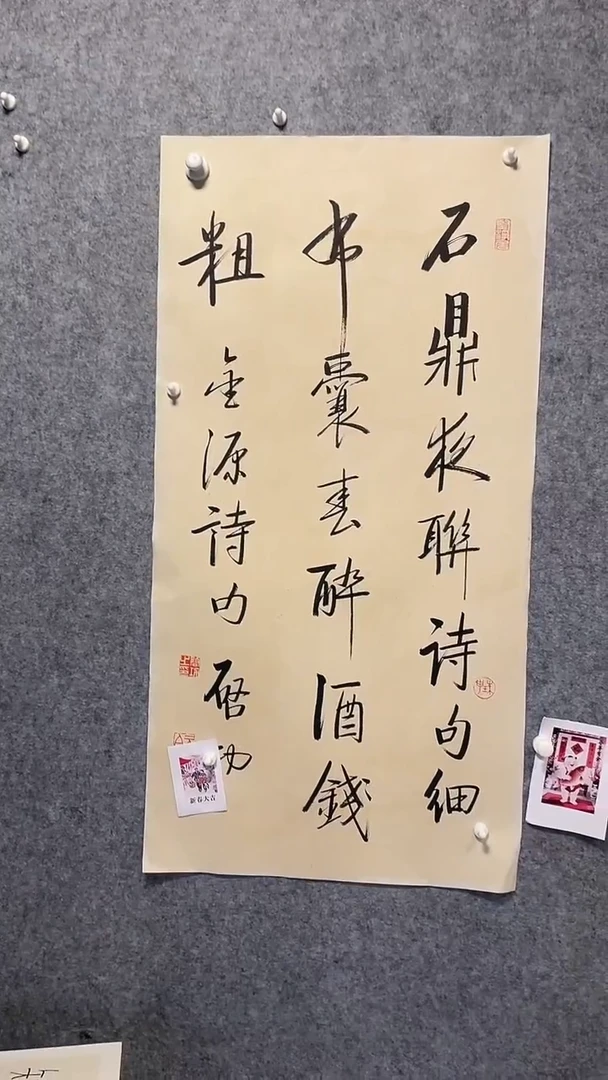 石鼎夜聯詩句細
布囊春醉酒錢
粗 金源詩句 啓功
新春大吉